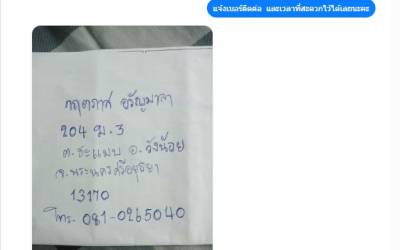 แจ้งเบอร์ติดต่อ และเวลาที่สะดวกไว้ได้เลยนะคะ
อรัญมาลา
204 ม.3
ต.ชะแมบ อ.วังน้อย
จ.พระนครศรีอยุธยา
13170
โทร. 081-0265040